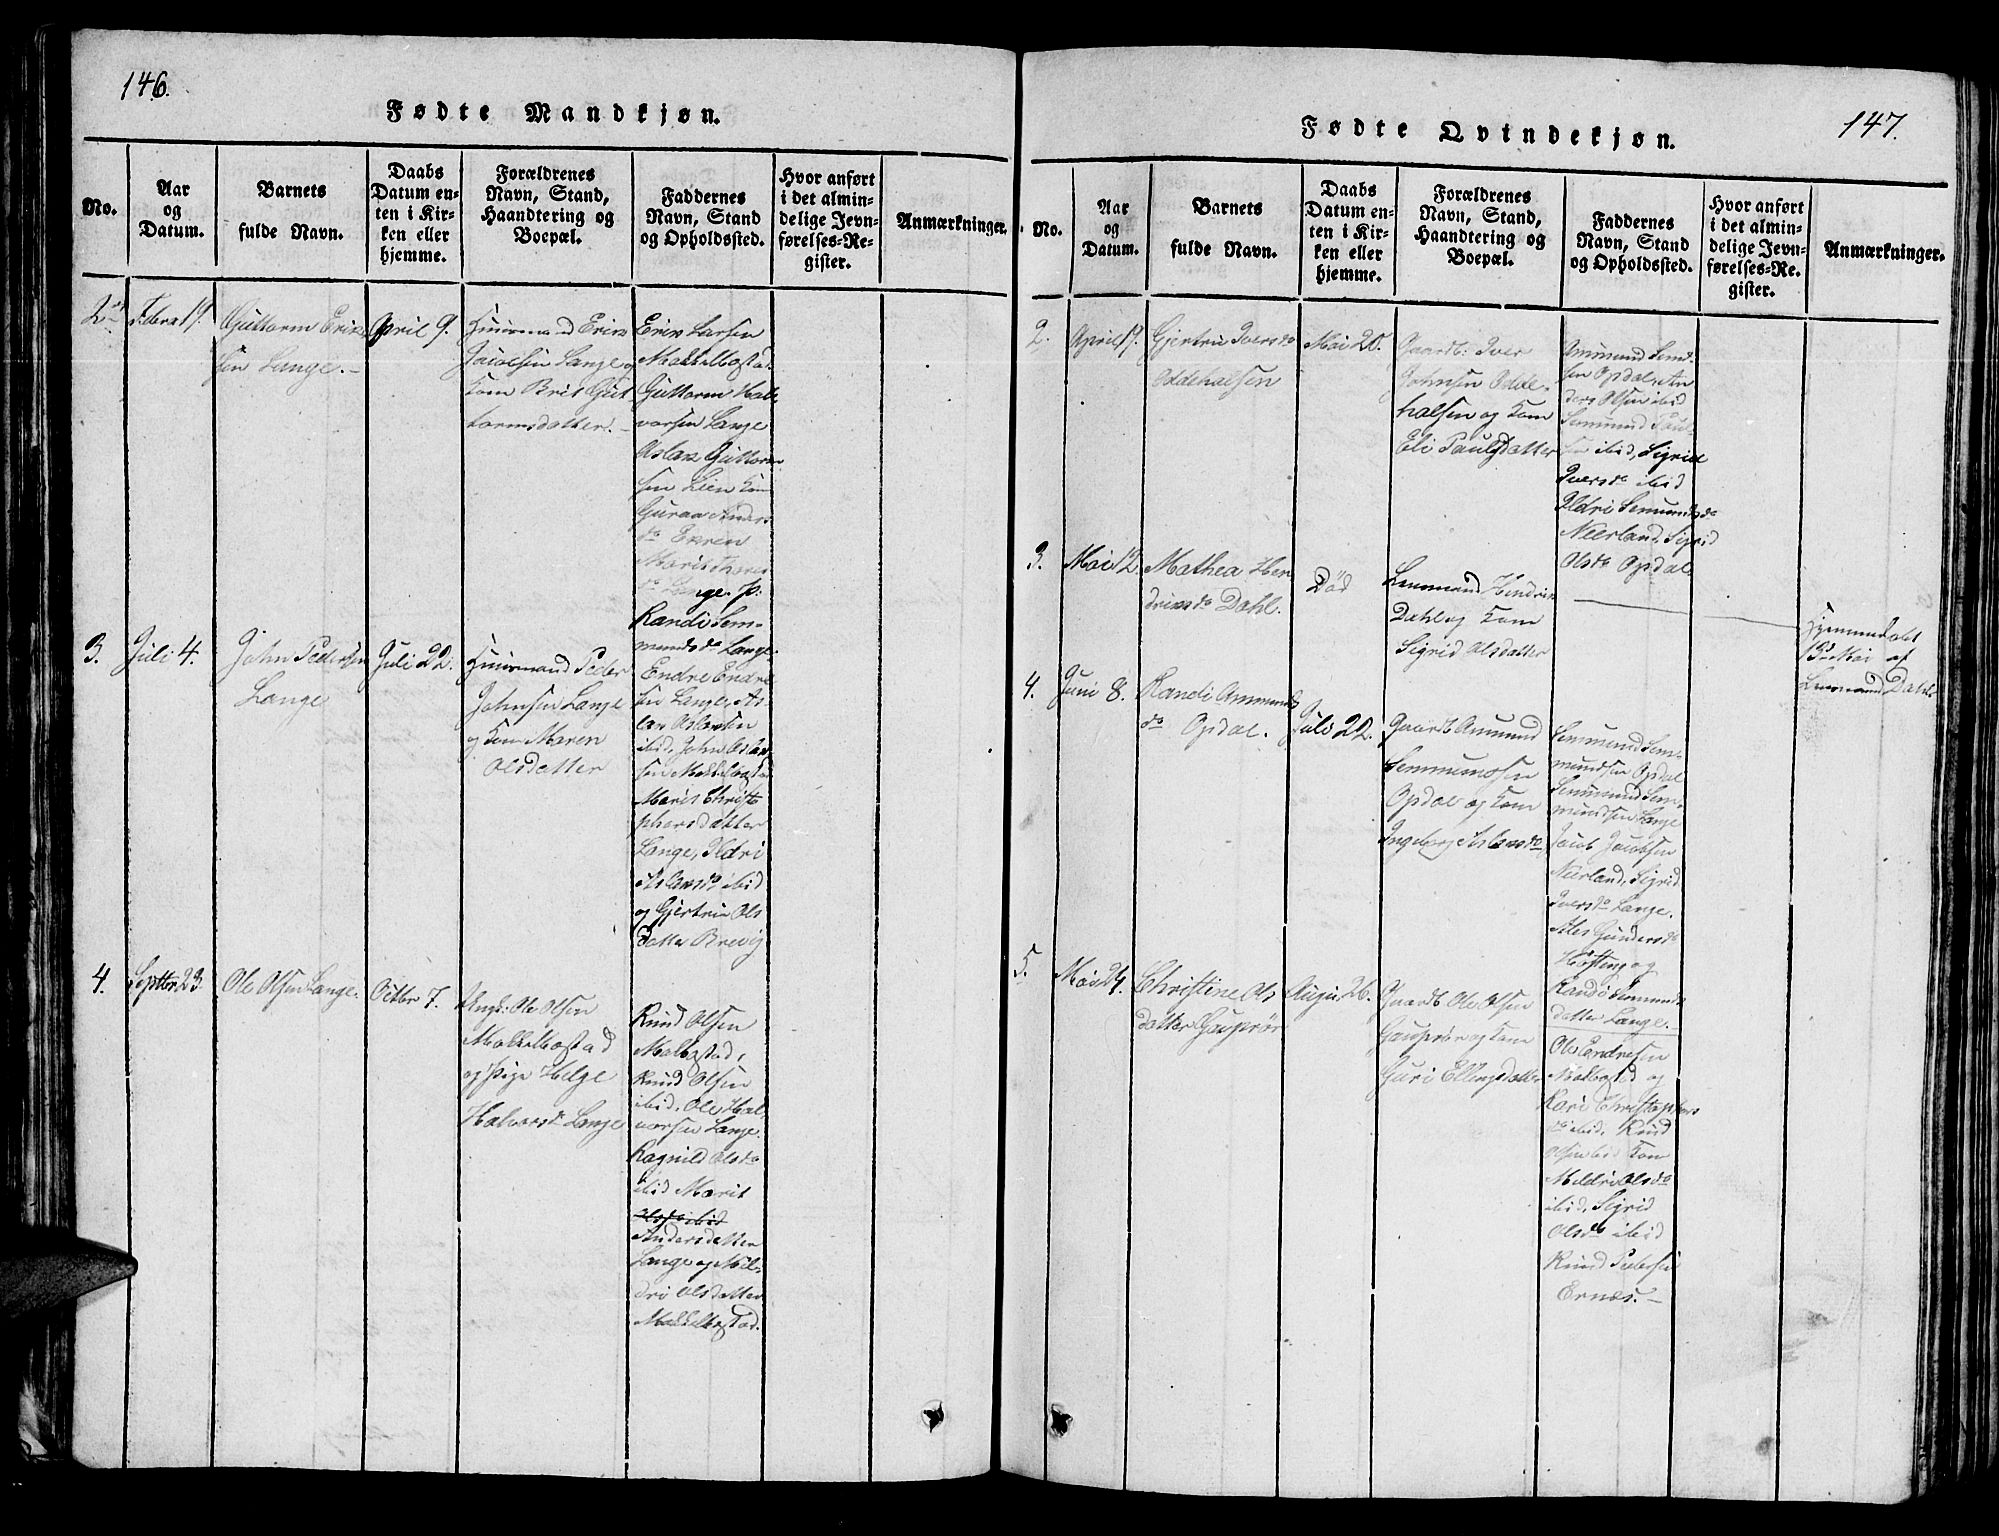 146.
Fødte Mandkjøn.
No.
Aar
og
Datum.
Barnets
fulde Navn.
Daabs
Datum en-
ten i Kir-
ken eller
hjemme.
Forældrenes
Navn, Stand,
Haandtering og
Boepæl.
Faddernes
Navn, Stand
og Opholdssted.
Hvor anført
i det almin-
delige Jevn-
førelses-Re-
gister.
Anmærkninger.
2
Febru 19.
Guttorm Erik
sen Lange.-
April 9.
Huusmand Erik
Jacobsen Lange og
Kone Brit Gut
tormsdatter.-
Erik Larsen
Mekkelbostad.
Guttorm Hal
vorsen Lange
Aslak Guttorm
sen Lien Kone
Guraa Anders
da Ekren
Marit Thores
da Lange. p.
Randi Sem-
mundsda Lange.
3.
Juli 4.
John Pedersen
Lange
Juli 22.
Huusmand Peder
Johnsen Lange
og Kone Maren
Olsdatter
Endre Endre
sen Lange, As
lak Aslaksen
ibid. John Aslak
sen Mekkelbostad
Marit Christo
phersdatter
Lange, Ildri
Aslaksda ibid
og Gjertrue Ols
datter Brevig
4.
Septbr. 23.
Ole Olsen Lange.
Octbr 7.
Ungk: Ole Olsen
Mekkelbostad
og Pige Helge
Halvorsda Lange
Knud Olsen
Malbostad,
Knud Olsen
ibid, Ole Hal
vorsen Lange.
Ragnild Olsda
ibid Marit
Olsda ibid
Andersdatter
Lange og Mil-
dri Olsdatter
Mekkelbostad.
147.
Fødte Qvindekjøn.
No.
Aar
og
Datum.
Barnets
fulde Navn.
Daabs
Datum en-
ten i Kir-
ken eller
hjemme.
Forældrenes
Navn, Stand,
Haandtering og
Boepæl.
Faddernes
Navn, Stand
og Opholdssted.
Hvor anført
i det almin-
delige Jevn-
førelses-Re-
gister.
Anmærkninger.
2.
April 19.
Gjertrue Iversda
Oddehalsen
Mai 20.
Gaardb: Iver
Johnsen Odde-
halsen og Kone
Eli Paulsdatter
Ammund Sem-
sen Opdal, An
ders Olsen ibid
Semmund Paul-
sen ibid, Sigrid
Iversda ibid
Ildri Semundsda
Neerland, Sigrid
Olsda Opdal.
3.
Mai 12.
Mathea Hen
driksda Dahl.
Død
Lensmand Hendrik
Dahl og Kone
Sigrid Olsdatter
Hjemmedøbt
13de Mai af
Lensmand Dahl
4.
Juni 8.
Randi Ammunds
da Opdal.
Juli 22.
Gaardb Ammund
Semmundsen
Opdal og Kone
Ingeborg Aslaksda
Semmund Sem-
mundsen Opdal
Semmund Sem-
mundsen Lange
Jacob Jacobsen
Neerland, Sigrid
Iversda Lange.
Ales Gundersda
Hosteng og
Randi Semmunds
datter Lange.
5.
Mai 24.
Christine Ols
datter Gauprør
Augu. 26.
Gaardb Ole Olsen
Gauprør og Kone
Guri Ellingsdatter
Ole Endresen
Malbostad og
Kari Christophers
da ibid. Knud
Olsen ibid Kone
Mildri Olsda
ibid, Sigrid
Olsda ibid
Knud Pedersen
Ernæs.-